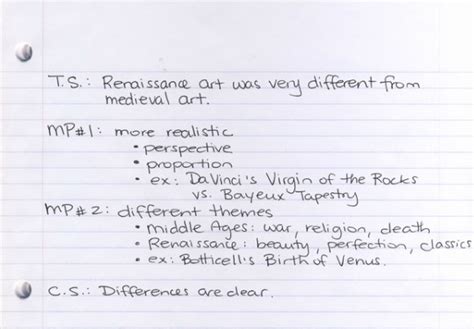 T.S.: Renaissance art was very different from
medieval art.
MP#1: more realistic
• perspective
• proportion
• ex: DaVinci's Virgin of the Rocks
vs. Bayeux Tapestry
MP#2: different themes
• middle Ages: war, religion, death
• Renaissance: beauty, perfection, classics
• ex: Botticell's Birth of Venus.
C.S.: Differences are clear.